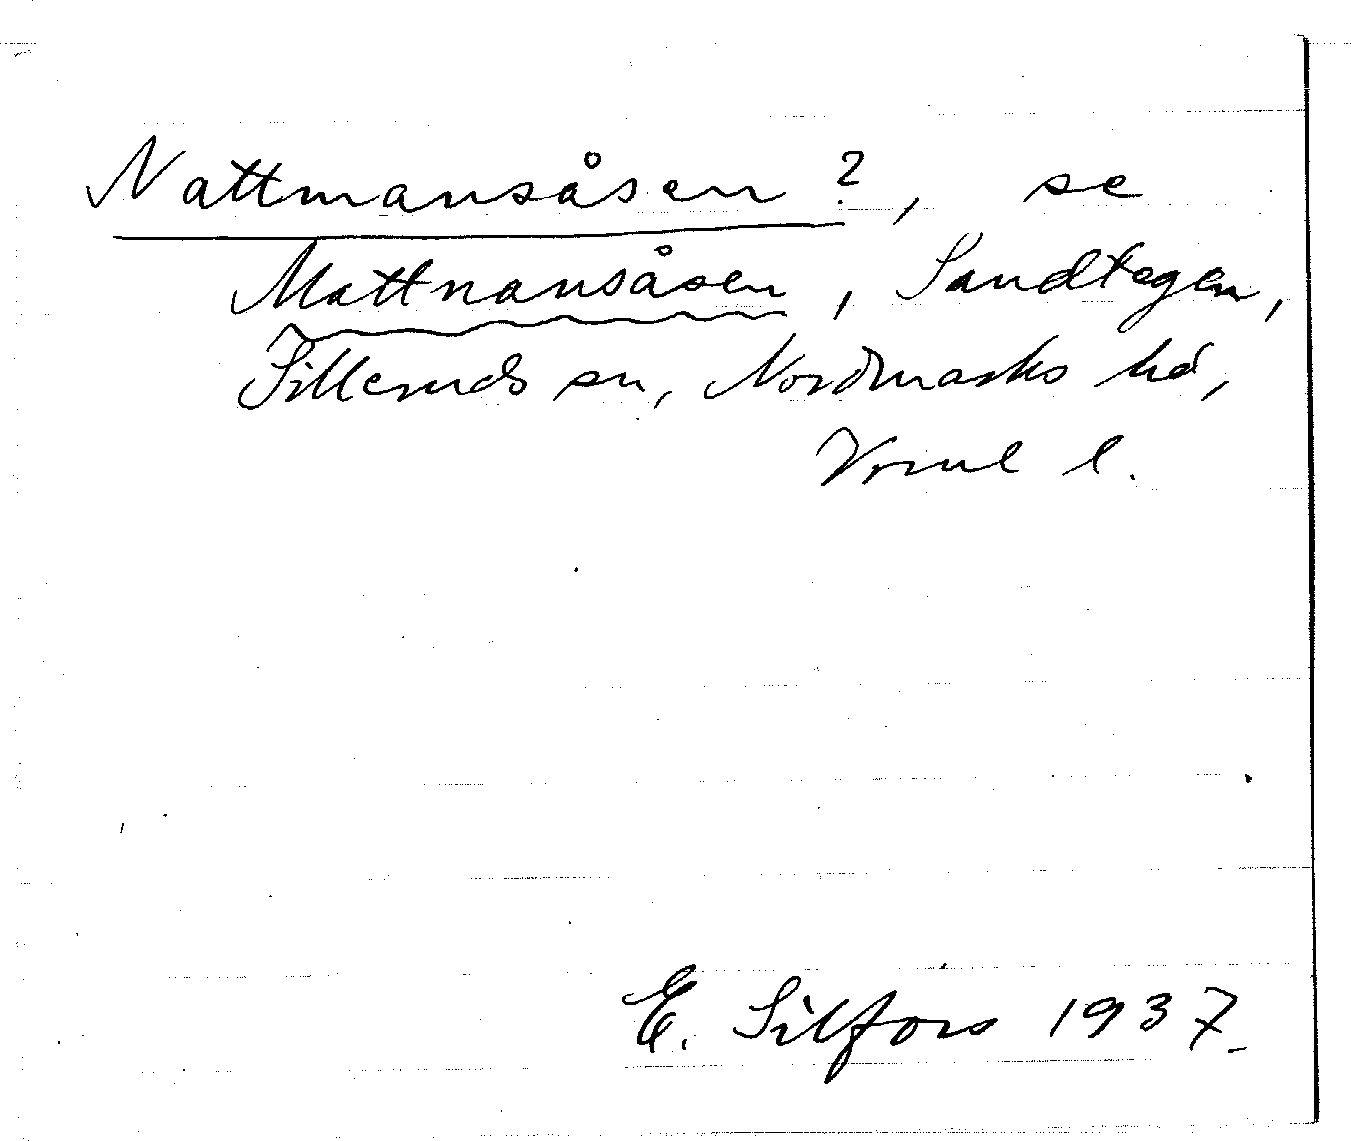 Nattmansåsen ?, se
Mattnansåsen, Sandtegen,
Silleruds sn, Nordmarks hd,
Vrml l.
E. Silfors 1937.